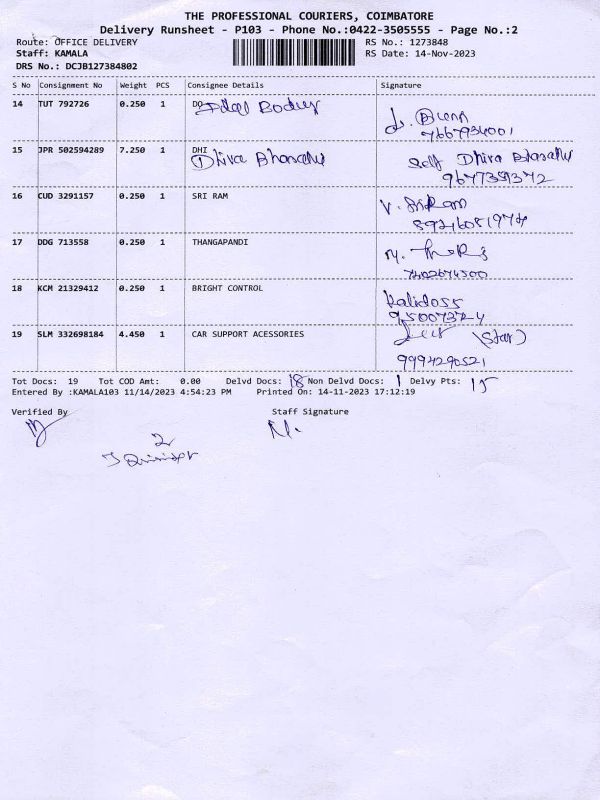 THE PROFESSIONAL COURIERS, COIMBATORE
Delivery Runsheet - P103 - Phone No.:0422-3505555 - Page No.:2
Route: OFFICE DELIVERY RS No.: 1273848
Staff: KAMALA RS Date: 14-Nov-2023
DRS No.: DCJB127384802
S No Consignment No Weight PCS Consignee Details Signature
14 TUT 792726 0.250 1 DO
7667934001
15 JPR 502594289 7.250 1 DHI Self Dhira Bharathi
Dhira Bharathi 9677359372
16 CUD 3291157 0.250 1 SRI RAM V. SriRam
8946081974
17 DDG 713558 0.250 1 THANGAPANDI
7402674500
18 KCM 21329412 0.250 1 BRIGHT CONTROL Kalidoss
19 SLM 332698184 4.450 1 CAR SUPPORT ACESSORIES (Star)
9994290521
Tot Docs: 19 Tot COD Amt: 0.00 Delvd Docs: 18 Non Delvd Docs: 1 Delvy Pts: 15
Entered By :KAMALA103 11/14/2023 4:54:23 PM Printed On: 14-11-2023 17:12:19
Verified By Staff Signature